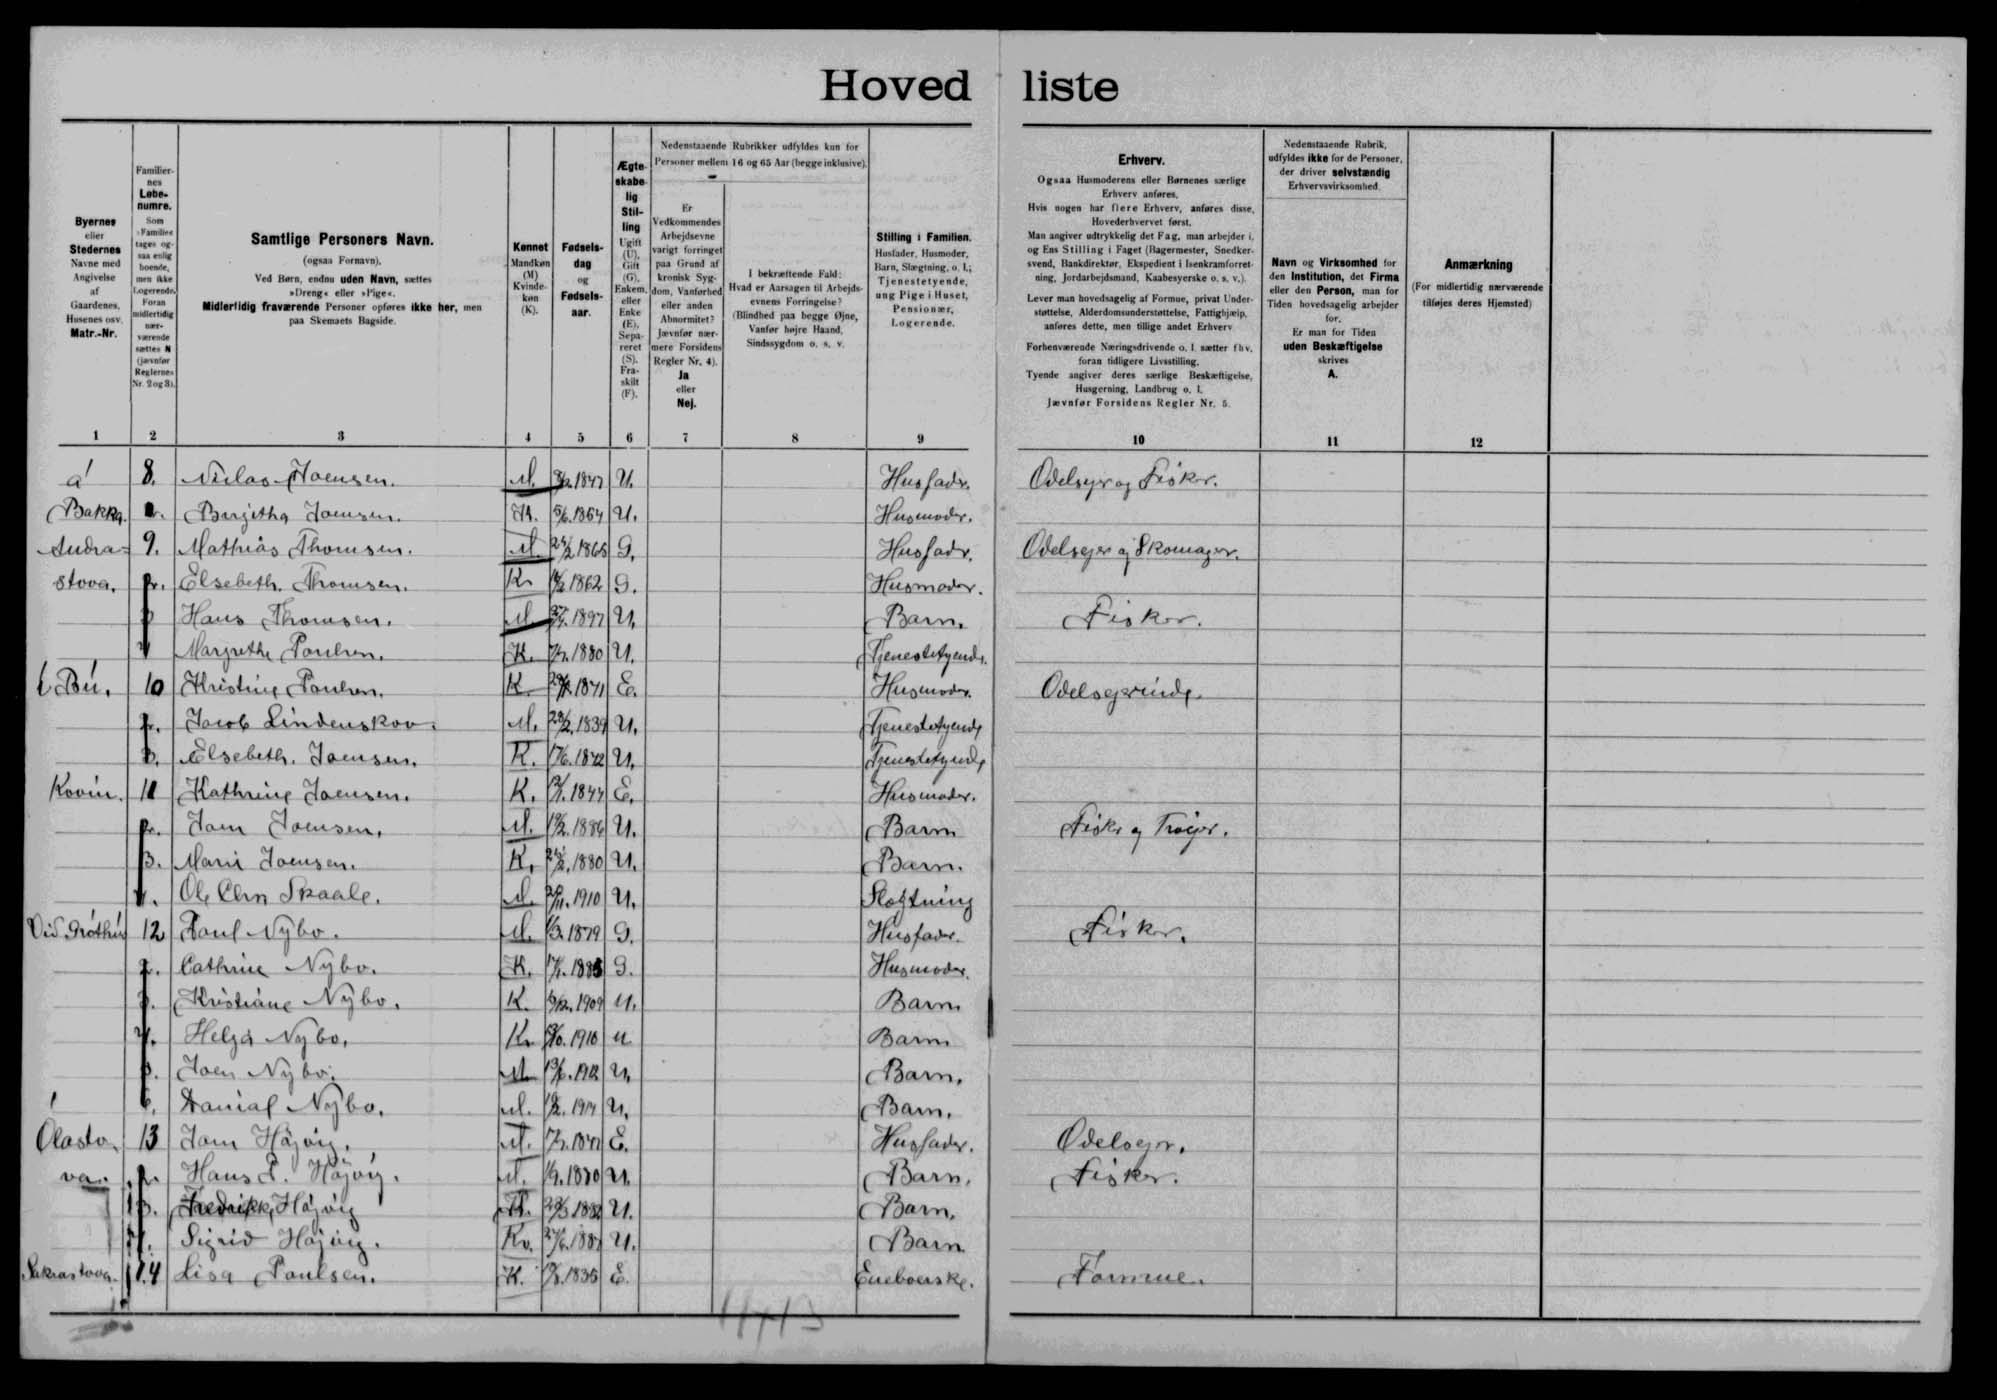 Hovedliste
Byernes eller Stedernes Navne med Angivelse af Gaardenes, Husenes osv. Matr.-Nr.
Familiernes Løbenumre. Som Familier tages ogsaa enlig boende, men ikke Logerende. Foran midlertidig nærværende sættes N (jævnfør Reglernes Nr. 2 og 3).
Samtlige Personers Navn. (ogsaa Fornavn). Ved Børn, endnu uden Navn, sættes »Dreng« eller »Pige«. Midlertidig fraværende Personer opføres ikke her, men paa Skemaets Bagside.
Kønnet Mandkøn (M) Kvindekøn (K).
Fødselsdag og Fødselsaar.
Ægteskabelig Stilling Ugift (U), Gift (G), Enkem. eller Enke (E), Separeret (S), Fraskilt (F).
Nedenstaaende Rubrikker udfyldes kun for Personer mellem 16 og 65 Aar (begge inklusive).
Er Vedkommendes Arbejdsevne varigt forringet paa Grund af kronisk Sygdom, Vanførhed eller anden Abnormitet? Jævnfør nærmere Forsidens Regler Nr. 4). Ja eller Nej.
I bekræftende Fald: Hvad er Aarsagen til Arbejdsevnens Forringelse? (Blindhed paa begge Øjne, Vanfør højre Haand, Sindssygdom o. s. v.
Stilling i Familien. Husfader, Husmoder, Barn, Slægtning, o. l.; Tjenestetyende, ung Pige i Huset, Pensionær, Logerende.
Erhverv.
Ogsaa Husmoderens eller Børnenes særlige Erhverv anføres.
Hvis nogen har flere Erhverv, anføres disse, Hovederhvervet først.
Man angiver udtrykkelig det Fag, man arbejder i, og Ens Stilling i Faget (Bagermester, Snedkersvend, Bankdirektør, Ekspedient i Isenkramforretning, Jordarbejdsmand, Kaabesyerske o. s. v.).
Lever man hovedsagelig af Formue, privat Understøttelse, Alderdomsunderstøttelse, Fattighjælp, anføres dette, men tillige andet Erhverv
Forhenværende Næringsdrivende o. l. sætter fhv. foran tidligere Livsstilling.
Tyende angiver deres særlige Beskæftigelse, Husgerning, Landbrug o. l.
Jævnfør Forsidens Regler Nr. 5.
Nedenstaaende Rubrik, udfyldes ikke for de Personer, der driver selvstændig Erhvervsvirksomhed.
Navn og Virksomhed for den Institution, det Firma eller den Person, man for Tiden hovedsagelig arbejder for.
Er man for Tiden uden Beskæftigelse skrives A.
Anmærkning (For midlertidig nærværende tilføjes deres Hjemsted)
1 2 3 4 5 6 7 8 9 10 11 12
á 8. Niclas Joensen. M. 1847 U. Husfader. Odelsejer og Fisker.
Bakka. Birgitha Joensen. K. 1864 U. Husmoder.
Andra= 9. Mathias Thomsen. M. 1865 G. Husfader. Odelsejer og Skomager.
stova. 2. Elsebeth Thomsen. K. 1862 G. Husmoder.
3 Hans Thomsen. M. 1897 U. Barn. Fisker.
4 Margrethe Poulsen. K. 1880 U. Tjenestetyende.
í Bú. 10 Kristine Poulsen. K. 1841 E. Husmoder. Odelsejerinde.
2. Jacob Lindenskov. M. 1839 U. Tjenestetyende
3. Elsebeth Joensen. K. 1842 U. Tjenestetyende
Kovin. 11 Kathrine Joensen. K. 1844 E. Husmoder.
2. Joen Joensen. M. 1886 U. Barn Fisker og Trøjer.
3. Marie Joensen. K. 1880 U. Barn.
4. Ole Chr. Skaale. M. 1910 U. Slægtning
Við Gróthús 12 Poul Nybo. M. 1879 G. Husfader. Fisker.
2. Cathrine Nybo. K. 1885 G. Husmoder.
3. Kristiane Nybo. K. 1909 U. Barn
4. Helga Nybo. K. 1910 U Barn
5. Joen Nybo. M. 1912 U. Barn.
6. Danial Nybo. M. 1914 U. Barn.
Ólasto 13 Joen Højvig. M. E. Husfader. Odelsejer.
va. 2. Hans P. Højvig. M. U. Barn. Fisker.
3. Fredrikke Højvig K. 1882 U. Barn.
4. Sigrid Højvig. K. U. Barn
Sakrastova. 14 Lisa Poulsen. K. 1835 E. Eneboerske. Formue.